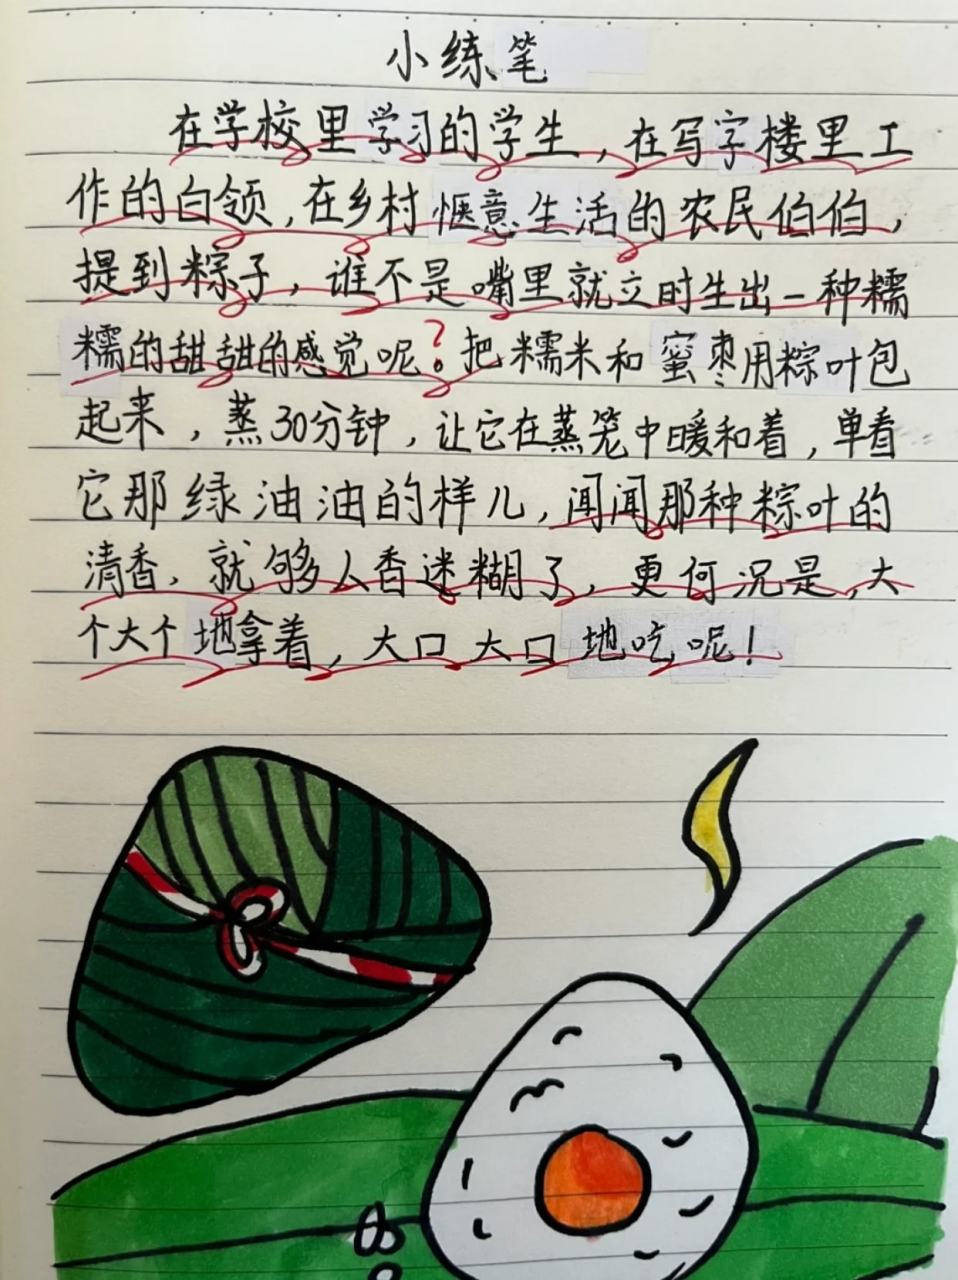 小练笔
在学校里学习的学生，在写字楼里工
作的白领，在乡村惬意生活的农民伯伯，
提到粽子，谁不是嘴里就立时生出一种糯
糯的甜甜的感觉呢？。把糯米和蜜枣用粽叶包
起来，蒸30分钟，让它在蒸笼中暖和着，单看
它那绿油油的样儿，闻闻那种粽叶的
清香，就够人香迷糊了，更何况是，大
个大个地拿着，大口大口地吃呢！